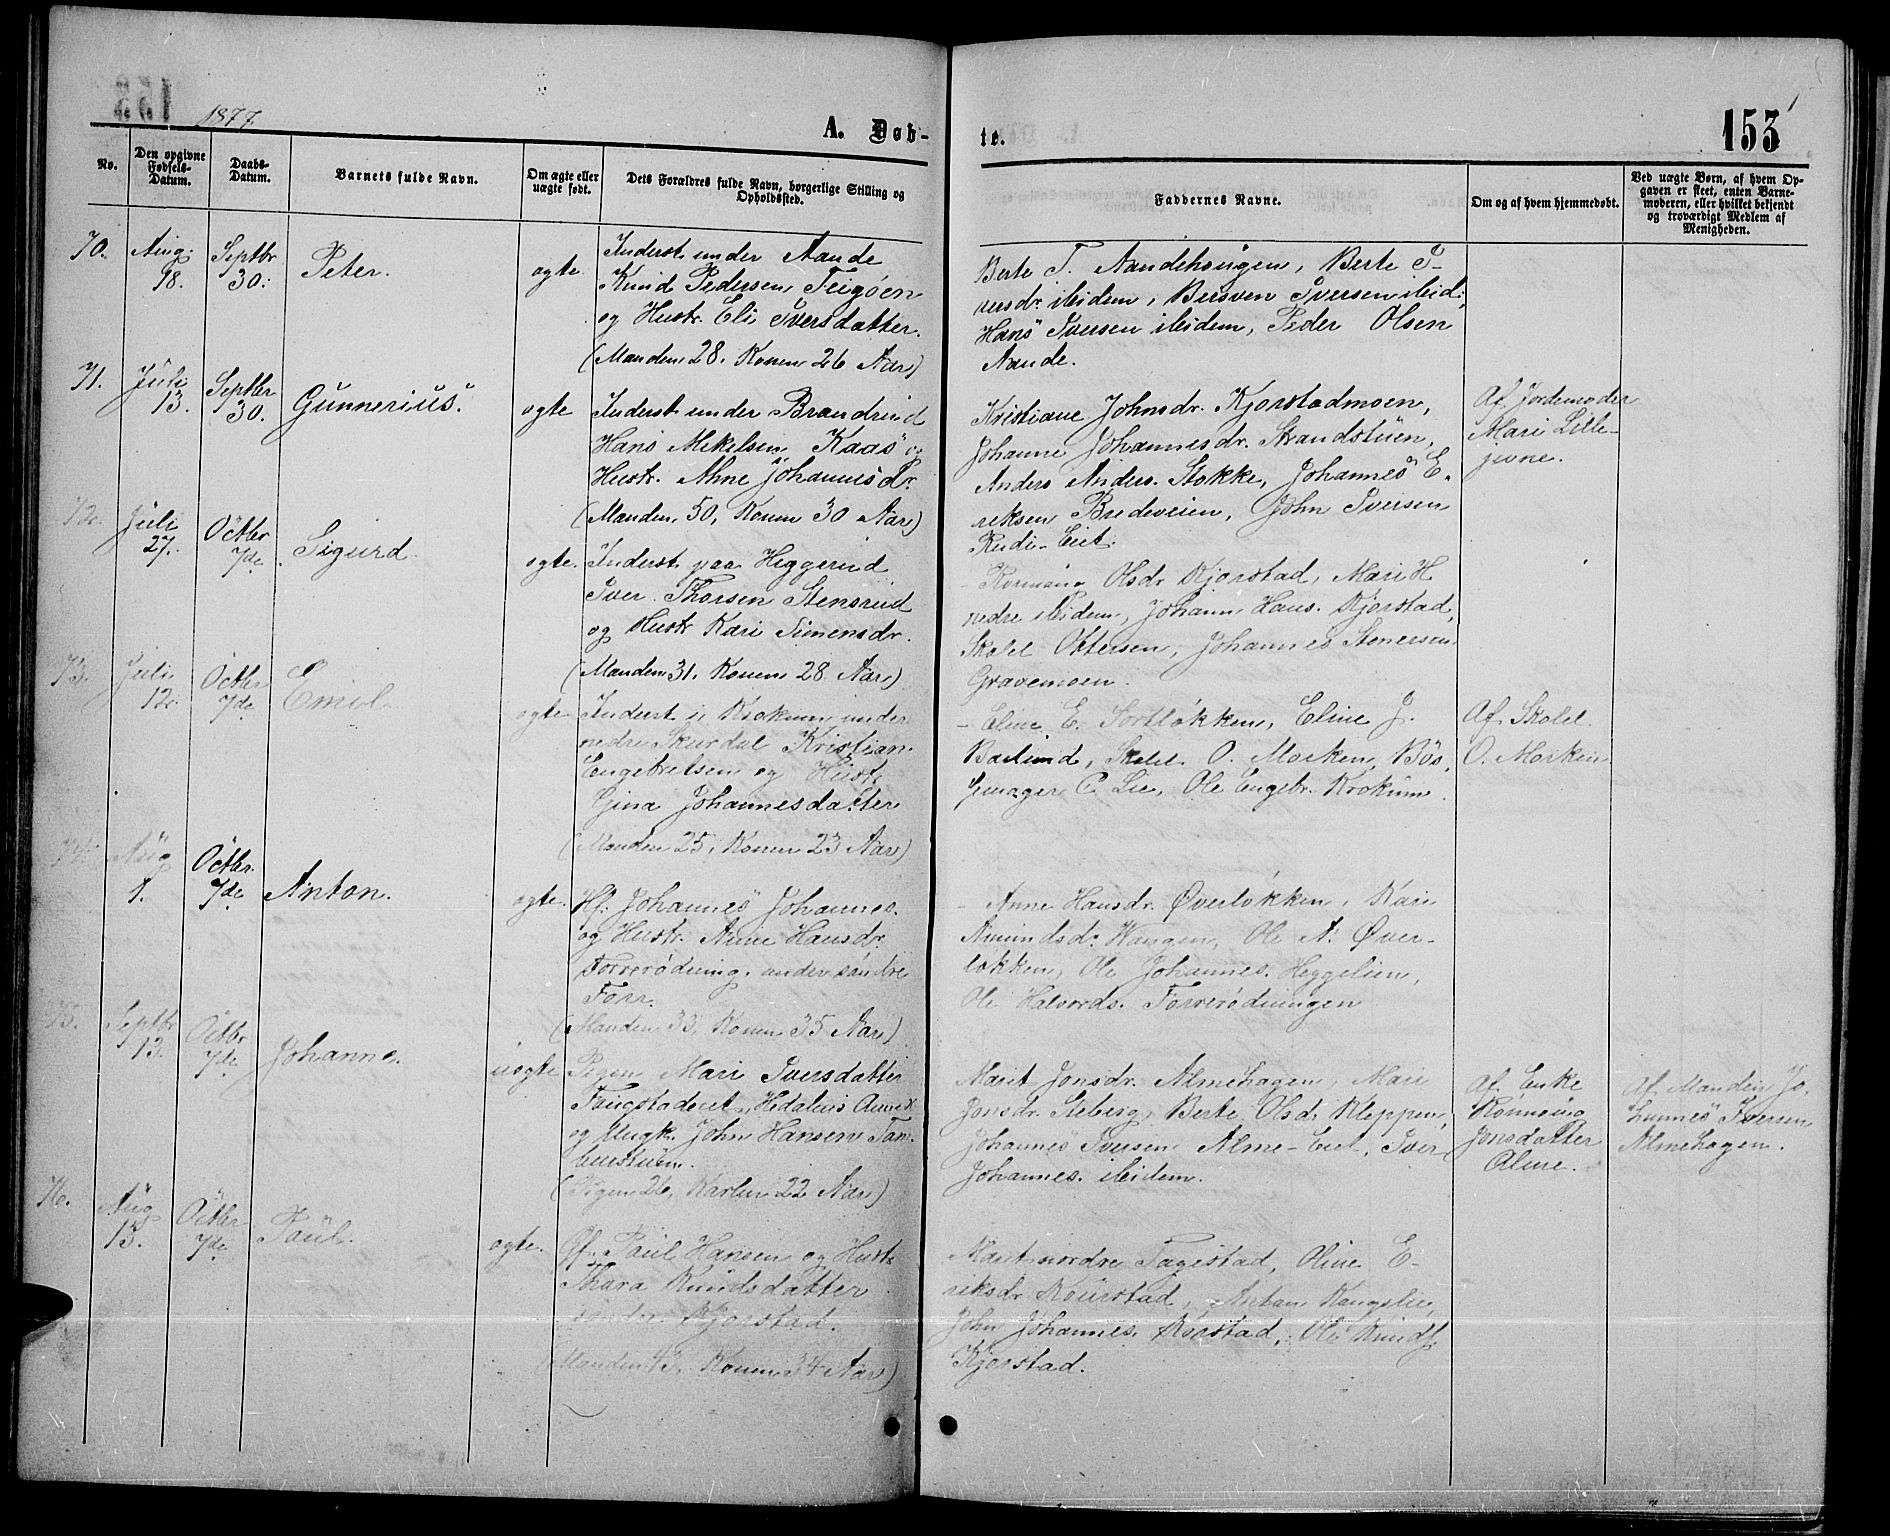 1877.
A. Døb-
te.
153
No.
Den opgivne Fødsels-Datum.
Daabs-Datum.
Barnets fulde Navn.
Om ægte eller uægte født.
Dets Forældres fulde Navn, borgerlige Stilling og Opholdssted.
Faddernes Navne.
Om og af hvem hjemmedøbt.
Ved uægte Børn, af hvem Opgaven er skeet, enten Barnemoderen, eller hvilket bekjendt og troværdigt Medlem af Menigheden.
70.
Aug. 18.
Septbr 30.
Peter.
ægte
Inderst under Aande
Knud Pedersen Teigøen
og Hustr. Eli Iversdatter.
(Manden 28. Konen 26 Aar)
Berte T. Aandehougen, Berte I-
versdr. ibidem, Bersven Iversen ibid.
Hans Iversen ibidem, Peder Olsen
Aande.
71.
Juli 13.
Septbr 30.
Gunnerius.
ægte
Inderst under Brandrud
Hans Mikelsen Kaas og
Hustr. Anne Johannisdr.
(Manden 50, Konen 30 Aar)
Kristiane Johnsdr. Kjorstadmoen,
Johanne Johannesdr. Strandstuen,
Anders Anders. Stokke, Johannes E-
riksen Bredeveien, John Iversen
Rudi-Eiet.
Af Jordemoder
Mari Lille-
jevne.
72.
Juli 27.
Octbr 7de
Sigurd
ægte.
Inderst paa Heggerud
Iver Thorsen Stensrud
og Hustr Kari Simensdr.
(Manden 31. Konen 28 Aar)
Rønnaug Olsdr Kjorstad, Mari H.
nedre ibidem, Johann Hans. Kjorstad,
Skolel Ottersen, Johannes Stenersen
Gravemoen.
73.
Juli 12.
Octbr 7de
Emil
ægte.
Inderst i Krokum under
nedre Skurdal Kristian
Engebretsen og Hustr.
Gina Johannesdatter
(Manden 25, Konen 23 Aar)
Eline E. Sortløkken, Eline J.
Baclund, Skolel. O. Morken, Bøs-
semager C Lie, Ole Engebr. Krokum.
Af Skolel.
O. Morken
74.
Aug 1.
Octbr. 7de
Anton.
ægte.
Hf. Johannes Johannes.
og Hustr. Anne Hansdr.
Forrerødning. under søndre
Forr.
(Manden 33, Konen 35 Aar)
Anne Hansdr. Øverløkken, Kari
Amundsdr. Wangen, Ole A. Øver-
løkken, Ole Johannes. Heggelien,
Ole Halvords. Forrerødningen
75.
Septbr 13.
Octbr 7de
Johanne.
uægte
Pigen Mari Iversdatter
Faugstaderet, Hedalens Annex
og Ungk. John Hansen Tam-
burstuen.
(Pigen 26, Karlen 22 Aar)
Marit Jonsdr. Almehagen, Mari
Jonsdr. Steberg, Berte Olsdr Kleppen,
Johannes Iversen Alme-Eiet, Iver
Johannes. ibidem.
Af Enke
Rønnaug
Jonsdatter
Alme.
Af Manden Jo-
hannes Iversen
Almehagen.
76.
Aug 13.
Octbr 7de
Paul.
ægte.
Gf. Paul Hansen og Hustr
Thora Knudsdatter
søndre Kjorstad.
(Manden 43, Konen 34 Aar)
Marit nordre Fagestad, Oline E-
riksdr Kourstad, Antam Kongslie,
John Johannes. Korstad, Ole Knuds.
Kjorstad.